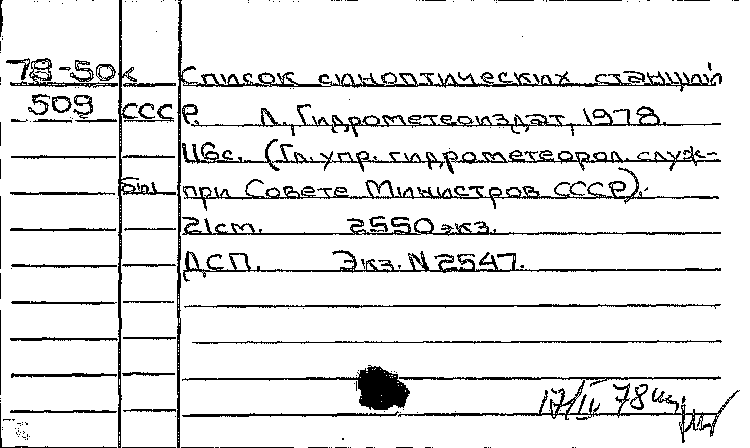 78-50к Список синоптических станций
509 СССР. Л., Гидрометеоиздат, 1978.
116с. (Гл. упр. гидрометеорол. служ-
бы при Совете Министров СССР).
21см. 2550 экз.
ДСП. Экз. N 2547.
17/IV 78